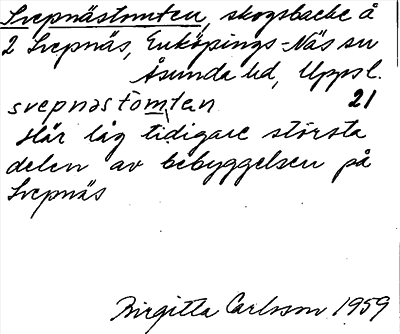 Svepnästomten, skogsbacke å
2 Svepnäs, Enköpings-Näs sn
Åsunda hd, Uppsl.
svepnästomtən 21
Här låg tidigare största
delen av bebyggelsen på
Svepnäs
Birgitta Carlsson 1959